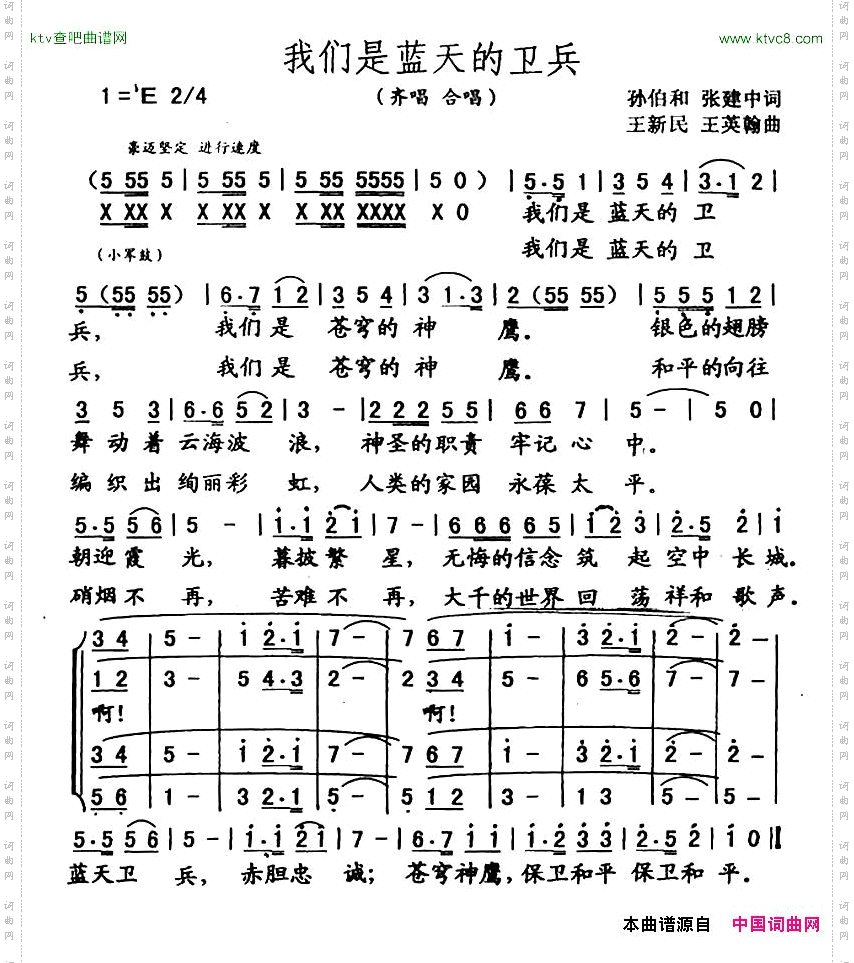 ktv查吧曲谱网
www.ktvc8.com
我们是蓝天的卫兵
1=♭E 2/4
(齐唱 合唱)
孙伯和 张建中词
王新民 王英翰曲
豪迈坚定 进行速度
(5 55 5|5 55 5|5 55 5555|5 0)|5·5 1|3 5 4|3·1 2|
X XX X X XX X X XX XXXX X 0 我们是 蓝天的 卫
(小军鼓) 我们是 蓝天的 卫
5(55 55)|6·7 1 2|3 5 4|3 1·3|2(55 55)|5 5 5 1 2|
兵, 我们是 苍穹的 神 鹰. 银色的翅膀
兵, 我们是 苍穹的 神 鹰. 和平的向往
3 5 3|6·6 5 2|3 -|2 2 2 5 5|6 6 7|5 -|5 0|
舞 动 着 云海波 浪, 神圣的职责 牢记 心 中.
编 织 出 绚丽彩 虹, 人类的家园 永葆 太 平.
5·5 5 6|5 -|1·1 2 1|7 -|6 6 6 6 5|1 2 3|2·5 2|1
朝迎霞 光, 暮披繁 星, 无悔的信念 筑 起 空中 长 城.
硝烟不 再, 苦难不 再, 大千的世界 回 荡 祥和 歌 声.
3 4 5 - 1 2·1 7 - 7 6 7 1 - 3 2·1 2 - 2 -
1 2 3 - 5 4·3 2 - 2 3 4 5 - 5 6·5·6 7 - 7 -
啊! 啊!
3 4 5 - 1 2·1 7 - 7 6 7 1 - 3 2·1 2 - 2 -
5 6 1 - 3 2·1 5 - 5 1 2 3 - 1 3 5 - 5 -
5·5 5 6|5 -|1·1 2 1|7 -|6·7 1 1|1·2 3 3|2·5 2|1 0‖
蓝天卫 兵, 赤胆忠 诚; 苍穹神鹰, 保卫和平 保卫和 平.
本曲谱源自 中国词曲网